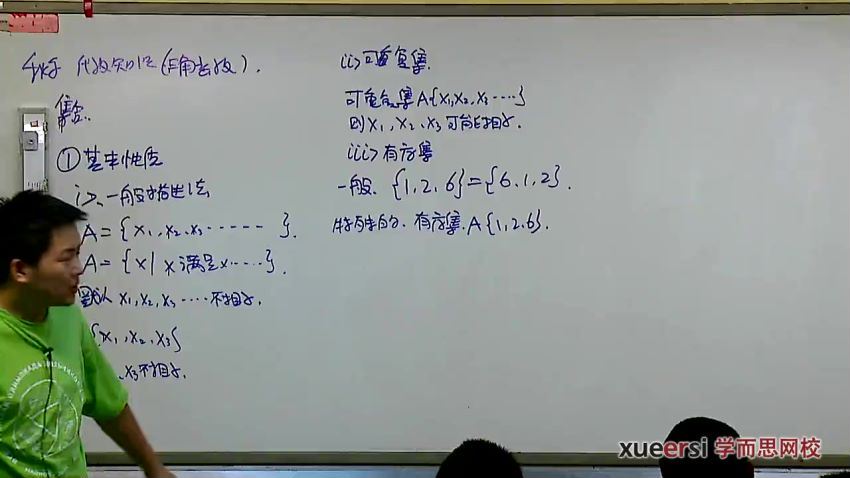 代数知识(三角函数).
集合.
①基本性质
i>、一般描述法
A={x₁,x₂,x₃·····}.
A={x|x满足x·····}.
默认x₁,x₂,x₃····不相等.
{x₁,x₂,x₃}
x₃不相等.
ii>可重复集.
可重复集A{x₁,x₂,x₃····}
则x₁、x₂、x₃可能相等.
iii>有序集
一般.{1,2,6}={6,1,2}.
特别的、有序集.A{1,2,6}.
xueersi 学而思网校